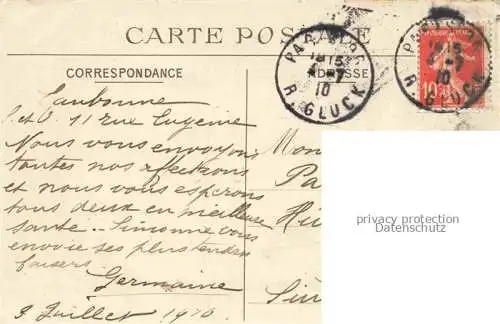 CARTE POSTALE
CORRESPONDANCE
ADRESSE
PARIS
1815
4-7
10
R. GLUCK
PARIS
1815
-7
10
R. GLUCK
10
Eaubonne
S.et O. 11 rue Eugenie
Nous vous envoyons
toutes nos affections
et nous vous esperons
tous deux en meilleure
sante. Simonne vous
envoie ses plus tendres
baisers
Germaine
3 Juillet 1910
Mon
Pa
privacy protection
Datenschutz